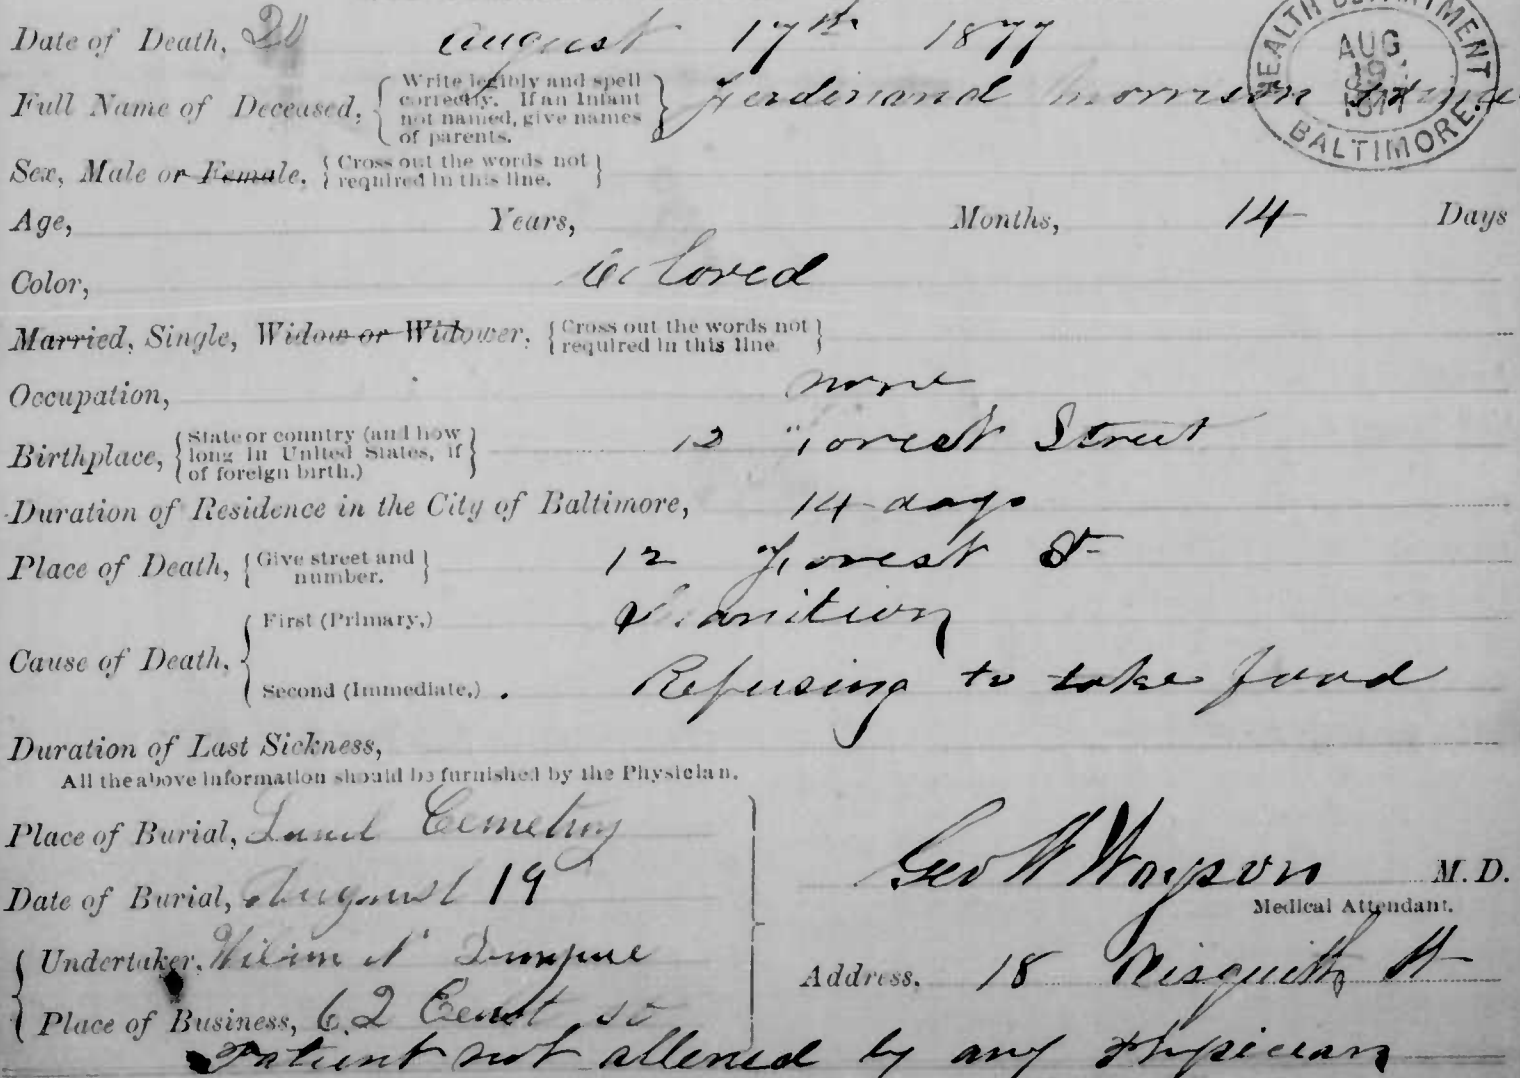 Date of Death, 20 August 17th 1877
HEALTH DEPARTMENT AUG 1877 BALTIMORE.
Full Name of Deceased, { Write legibly and spell correctly. If an Infant not named, give names of parents. } Ferdinand Morrison
Sex, Male or Female, { Cross out the words not required in this line. }
Age, Years, Months, 14 Days
Color, Colored
Married, Single, Widow or Widower, { Cross out the words not required in this line. }
Occupation, none
Birthplace, { State or country (and how long in United States, if of foreign birth.) } 12 Forest Street
Duration of Residence in the City of Baltimore, 14 days
Place of Death, { Give street and number. } 12 Forest St
Cause of Death, { First (Primary,) Inanition
Second (Immediate,) Refusing to take food
Duration of Last Sickness,
All the above information should be furnished by the Physician.
Place of Burial, Laurel Cemetry
Date of Burial, August 19
Geo W Wayson M.D.
Medical Attendant.
{ Undertaker,
Address, 18 Aisquith St
Place of Business, 62
Patient not attened by any Physician